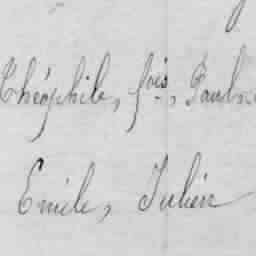 Théophile, fois, Paul
Emile, Julien